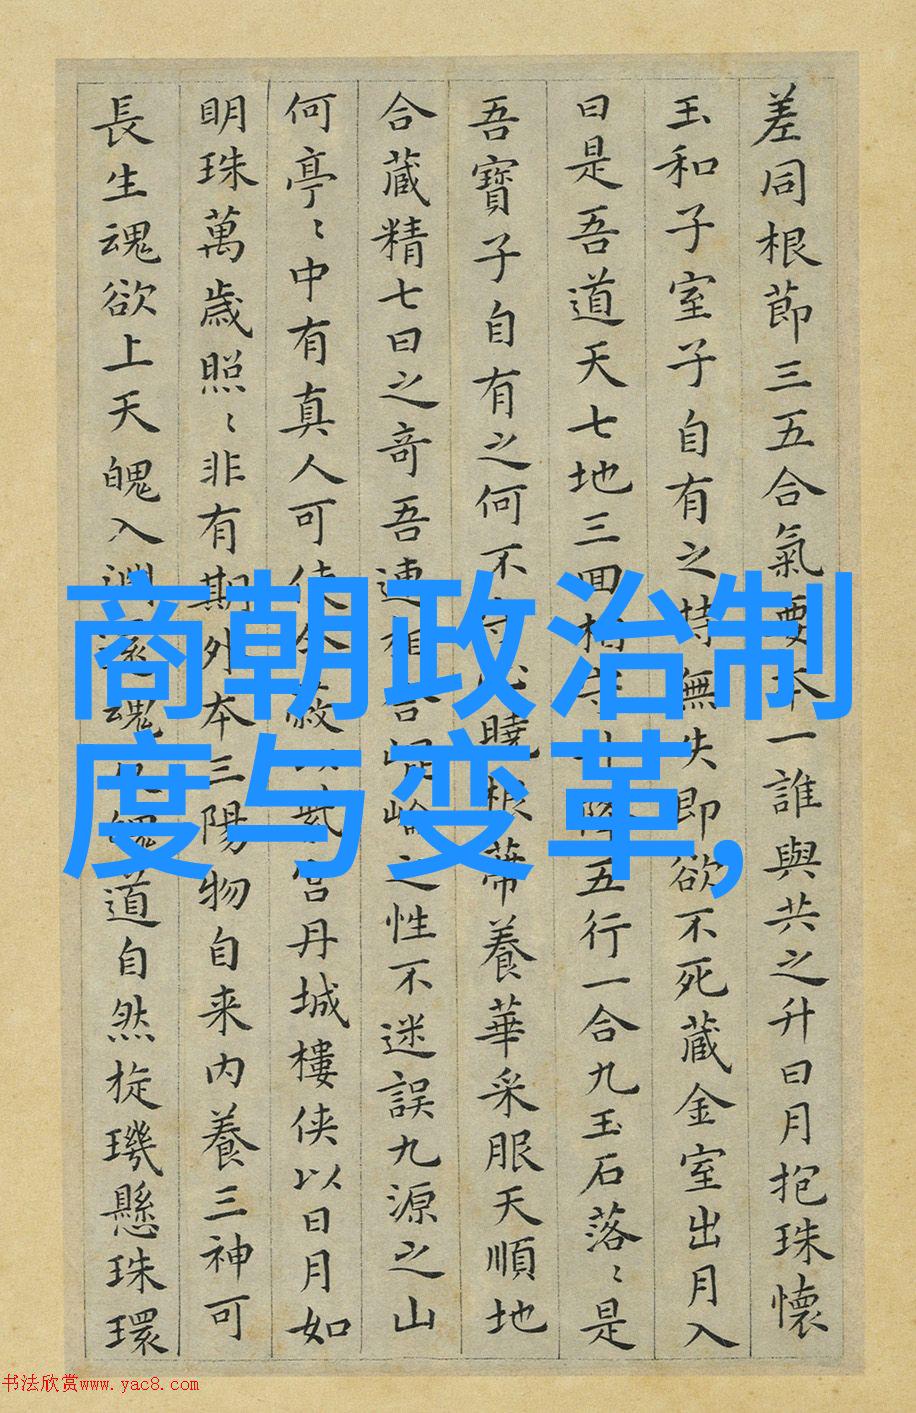 差同根節三五合氣要本一誰與共之升日月抱珠懷
玉和子室子自有之持無失即欲不死藏金室出月入
日是吾道天七地三回相守升降五行一合九玉石落〻是
吾寶子自有之何不守心曉根蒂養華采服天順地
合藏精七日之奇吾連相合崐崘之性不迷誤九源之山
何亭〻中有真人可使令蔽以紫宮丹城樓俠以日月如
明珠萬歲照〻非有期外本三陽物自来内養三神可
長生魂欲上天魄入淵還魂反魄道自然旋璣懸珠環
商朝政治制
度与变革,
书法欣赏www.yac8.com